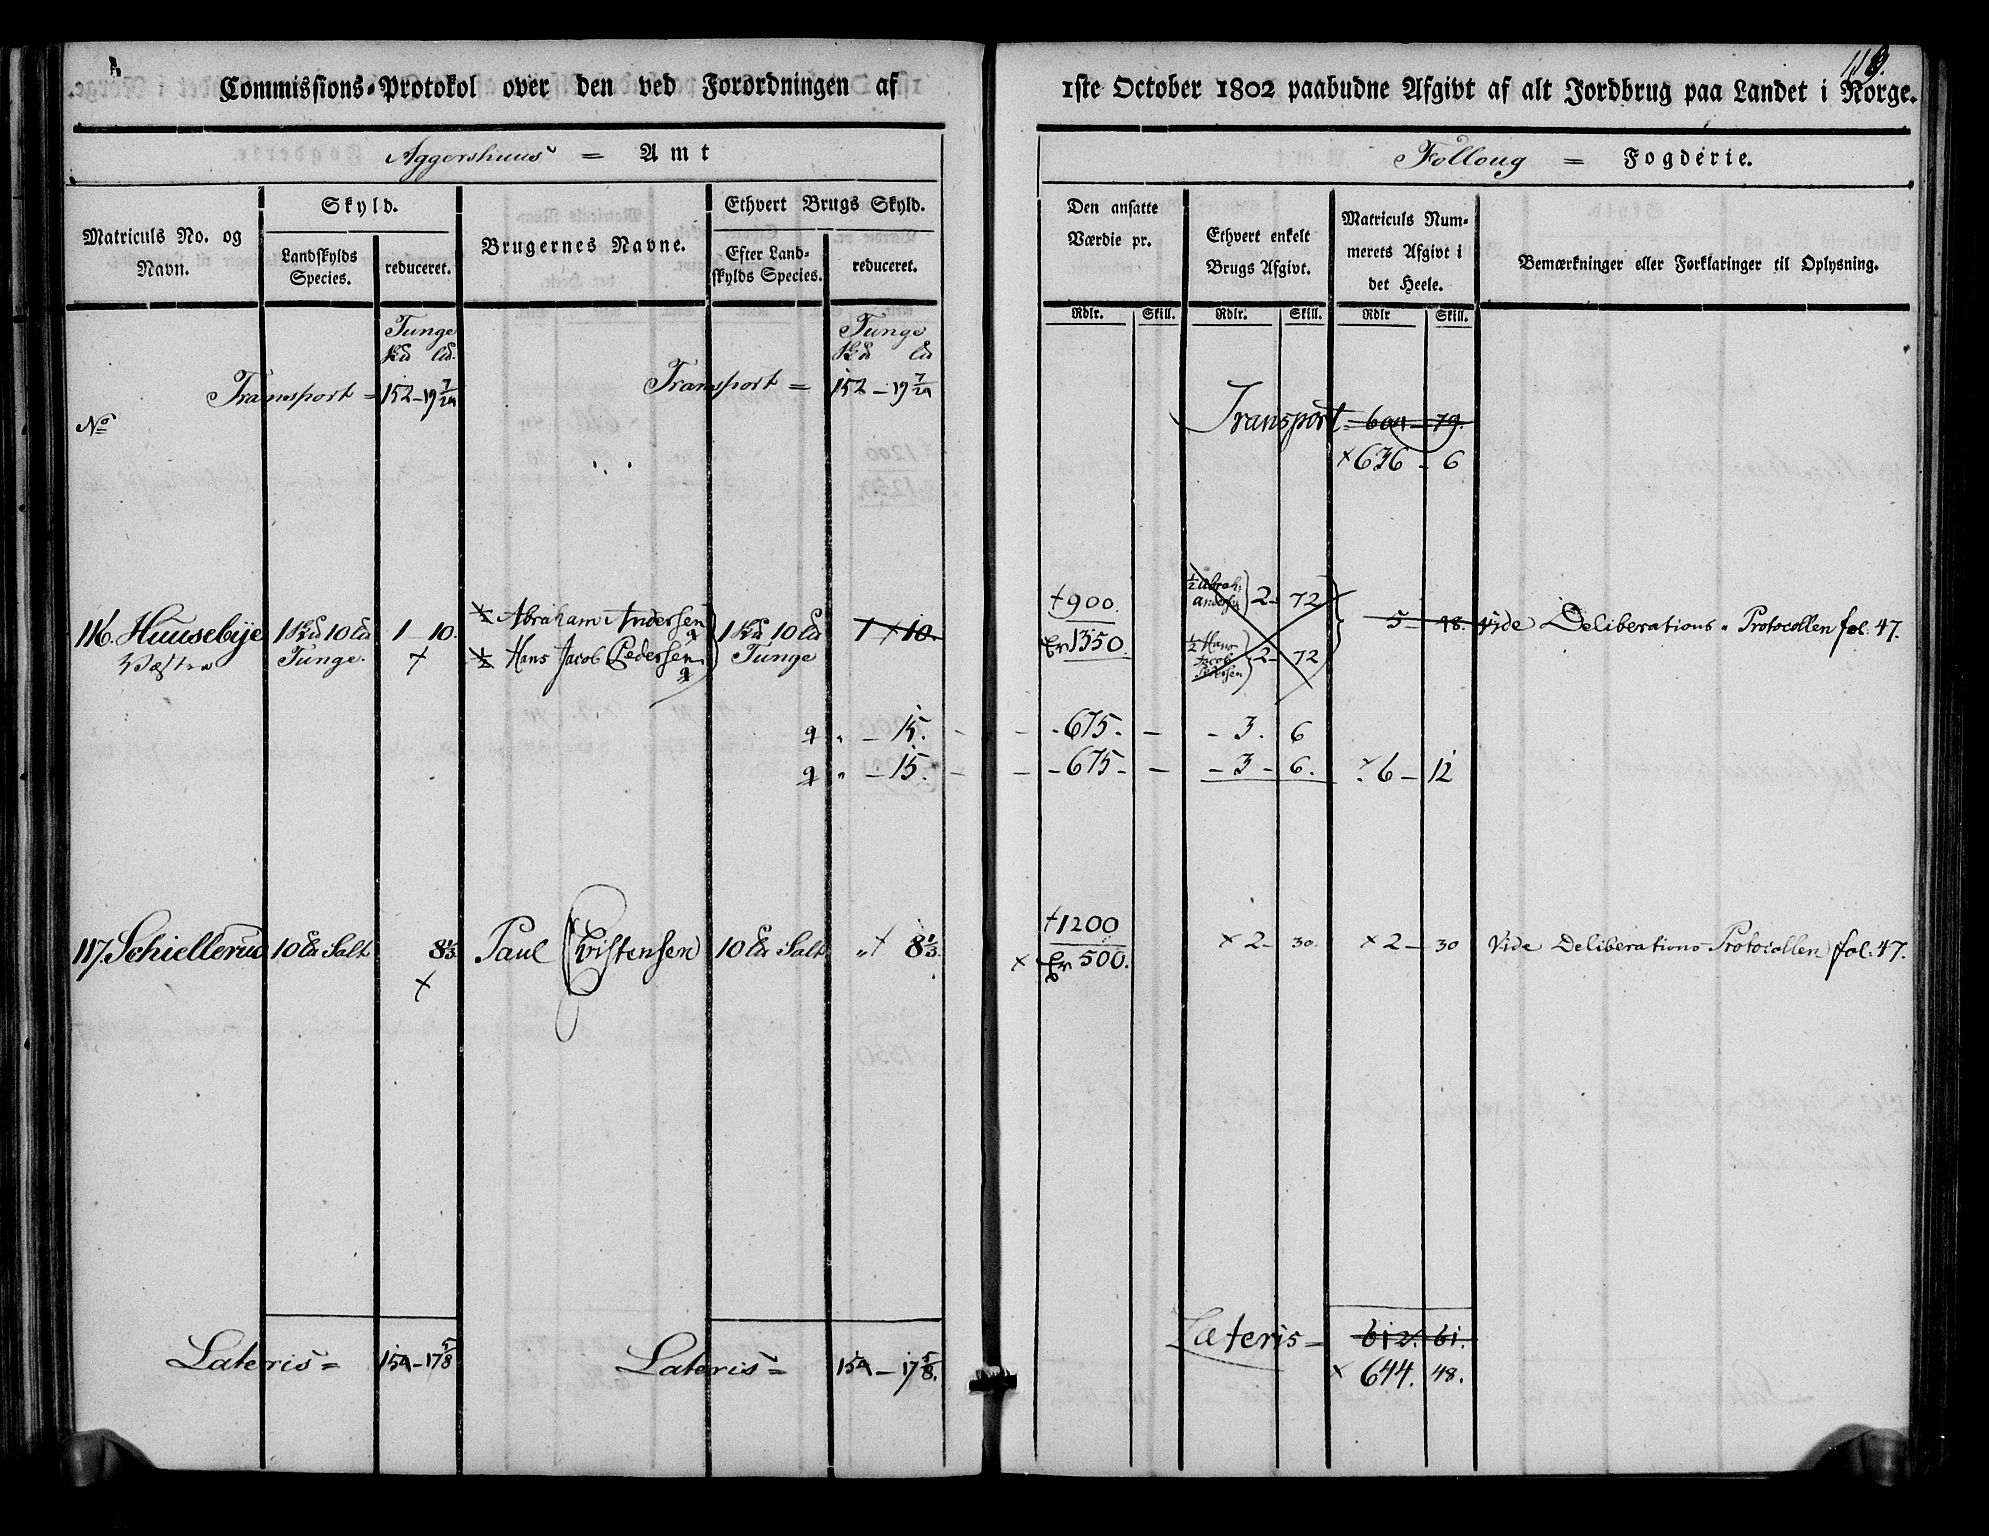 Commissions-Protokol over den ved Forordningen af
1ste October 1802 paabudne Afgivt af alt Jordbrug paa Landet i Norge.
Aggershuus = Amt
Folloug = Fogderie.
Matriculs No. og Navn.
Skyld.
Landskylds Species.
reduceret.
Brugernes Navne.
Ethvert Brugs Skyld.
Efter Landskylds Species.
reduceret.
Den ansatte Værdie pr.
Ethvert enkelt Brugs Afgivt.
Matriculs Nummerets Afgivt i det Heele.
Bemærkninger eller Forklaringer til Oplysning.
Rdlr. Skill. Rdlr. Skill. Rdlr Skill.
Tunge Tunge
Transport = 152 - 19 7/24 Transport = 152 - 19 7/24 Transport = 604 - 79.
No
× 636 - 6
116. Huusebÿe 1 10 1 - 10. ½ Abraham Andersen 1 10 1 × 10. † 900. ½ Abrah: Andersen 2 - 72 5 - 48. Vide Deliberations - Protocollen fol. 47.
Tunge. × ½ Hans Jacob Pedersen Tunge 1350. ½ Hans Jacob Pedersen 2 - 72
q " - 15. - 675. - - 3. 6
q " - 15. - 675 - - 3 - 6. 6 - 12
117. Schiellerud 10 Salt 8⅓ Paul Christensen 10 Salt " × 8⅓. † 1200 × 2 - 30. × 2 - 30 Vide Deliberations Protocollen fol. 47.
× × 500.
Lateris = 154 - 17 5/8 Lateris = 154 - 17 5/8. Lateris = 612. 61.
× 644. 48.